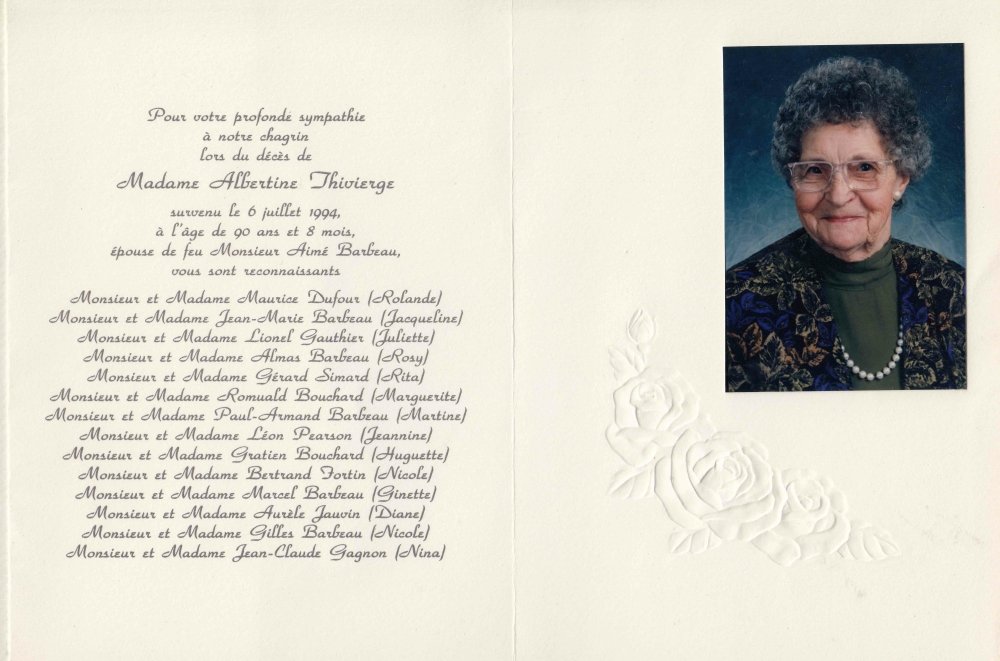 Pour votre profonde sympathie
à notre chagrin
lors du décès de
Madame Albertine Thivierge
survenu le 6 juillet 1994,
à l'âge de 90 ans et 8 mois,
épouse de feu Monsieur Aimé Barbeau,
vous sont reconnaissants
Monsieur et Madame Maurice Dufour (Rolande)
Monsieur et Madame Jean-Marie Barbeau (Jacqueline)
Monsieur et Madame Lionel Gauthier (Juliette)
Monsieur et Madame Almas Barbeau (Rosy)
Monsieur et Madame Gérard Simard (Rita)
Monsieur et Madame Romuald Bouchard (Marguerite)
Monsieur et Madame Paul-Armand Barbeau (Martine)
Monsieur et Madame Léon Pearson (Jeannine)
Monsieur et Madame Gratien Bouchard (Huguette)
Monsieur et Madame Bertrand Fortin (Nicole)
Monsieur et Madame Marcel Barbeau (Ginette)
Monsieur et Madame Aurèle Jauvin (Diane)
Monsieur et Madame Gilles Barbeau (Nicole)
Monsieur et Madame Jean-Claude Gagnon (Nina)